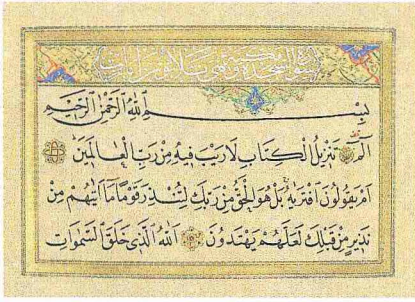 سورة السجدة
بِسْمِ اللهِ الرَّحْمٰنِ الرَّحِيمِ
الٓمٓ تَنْزِيلُ الْكِتَابِ لَا رَيْبَ فِيهِ مِنْ رَبِّ الْعَالَمِينَ
اَمْ يَقُولُونَ افْتَرٰيهُ بَلْ هُوَ الْحَقُّ مِنْ رَبِّكَ لِتُنْذِرَ قَوْمًا مَا اَتٰيهُمْ مِنْ
نَذِيرٍ مِنْ قَبْلِكَ لَعَلَّهُمْ يَهْتَدُونَ اَللهُ الَّذِي خَلَقَ السَّمٰوَاتِ